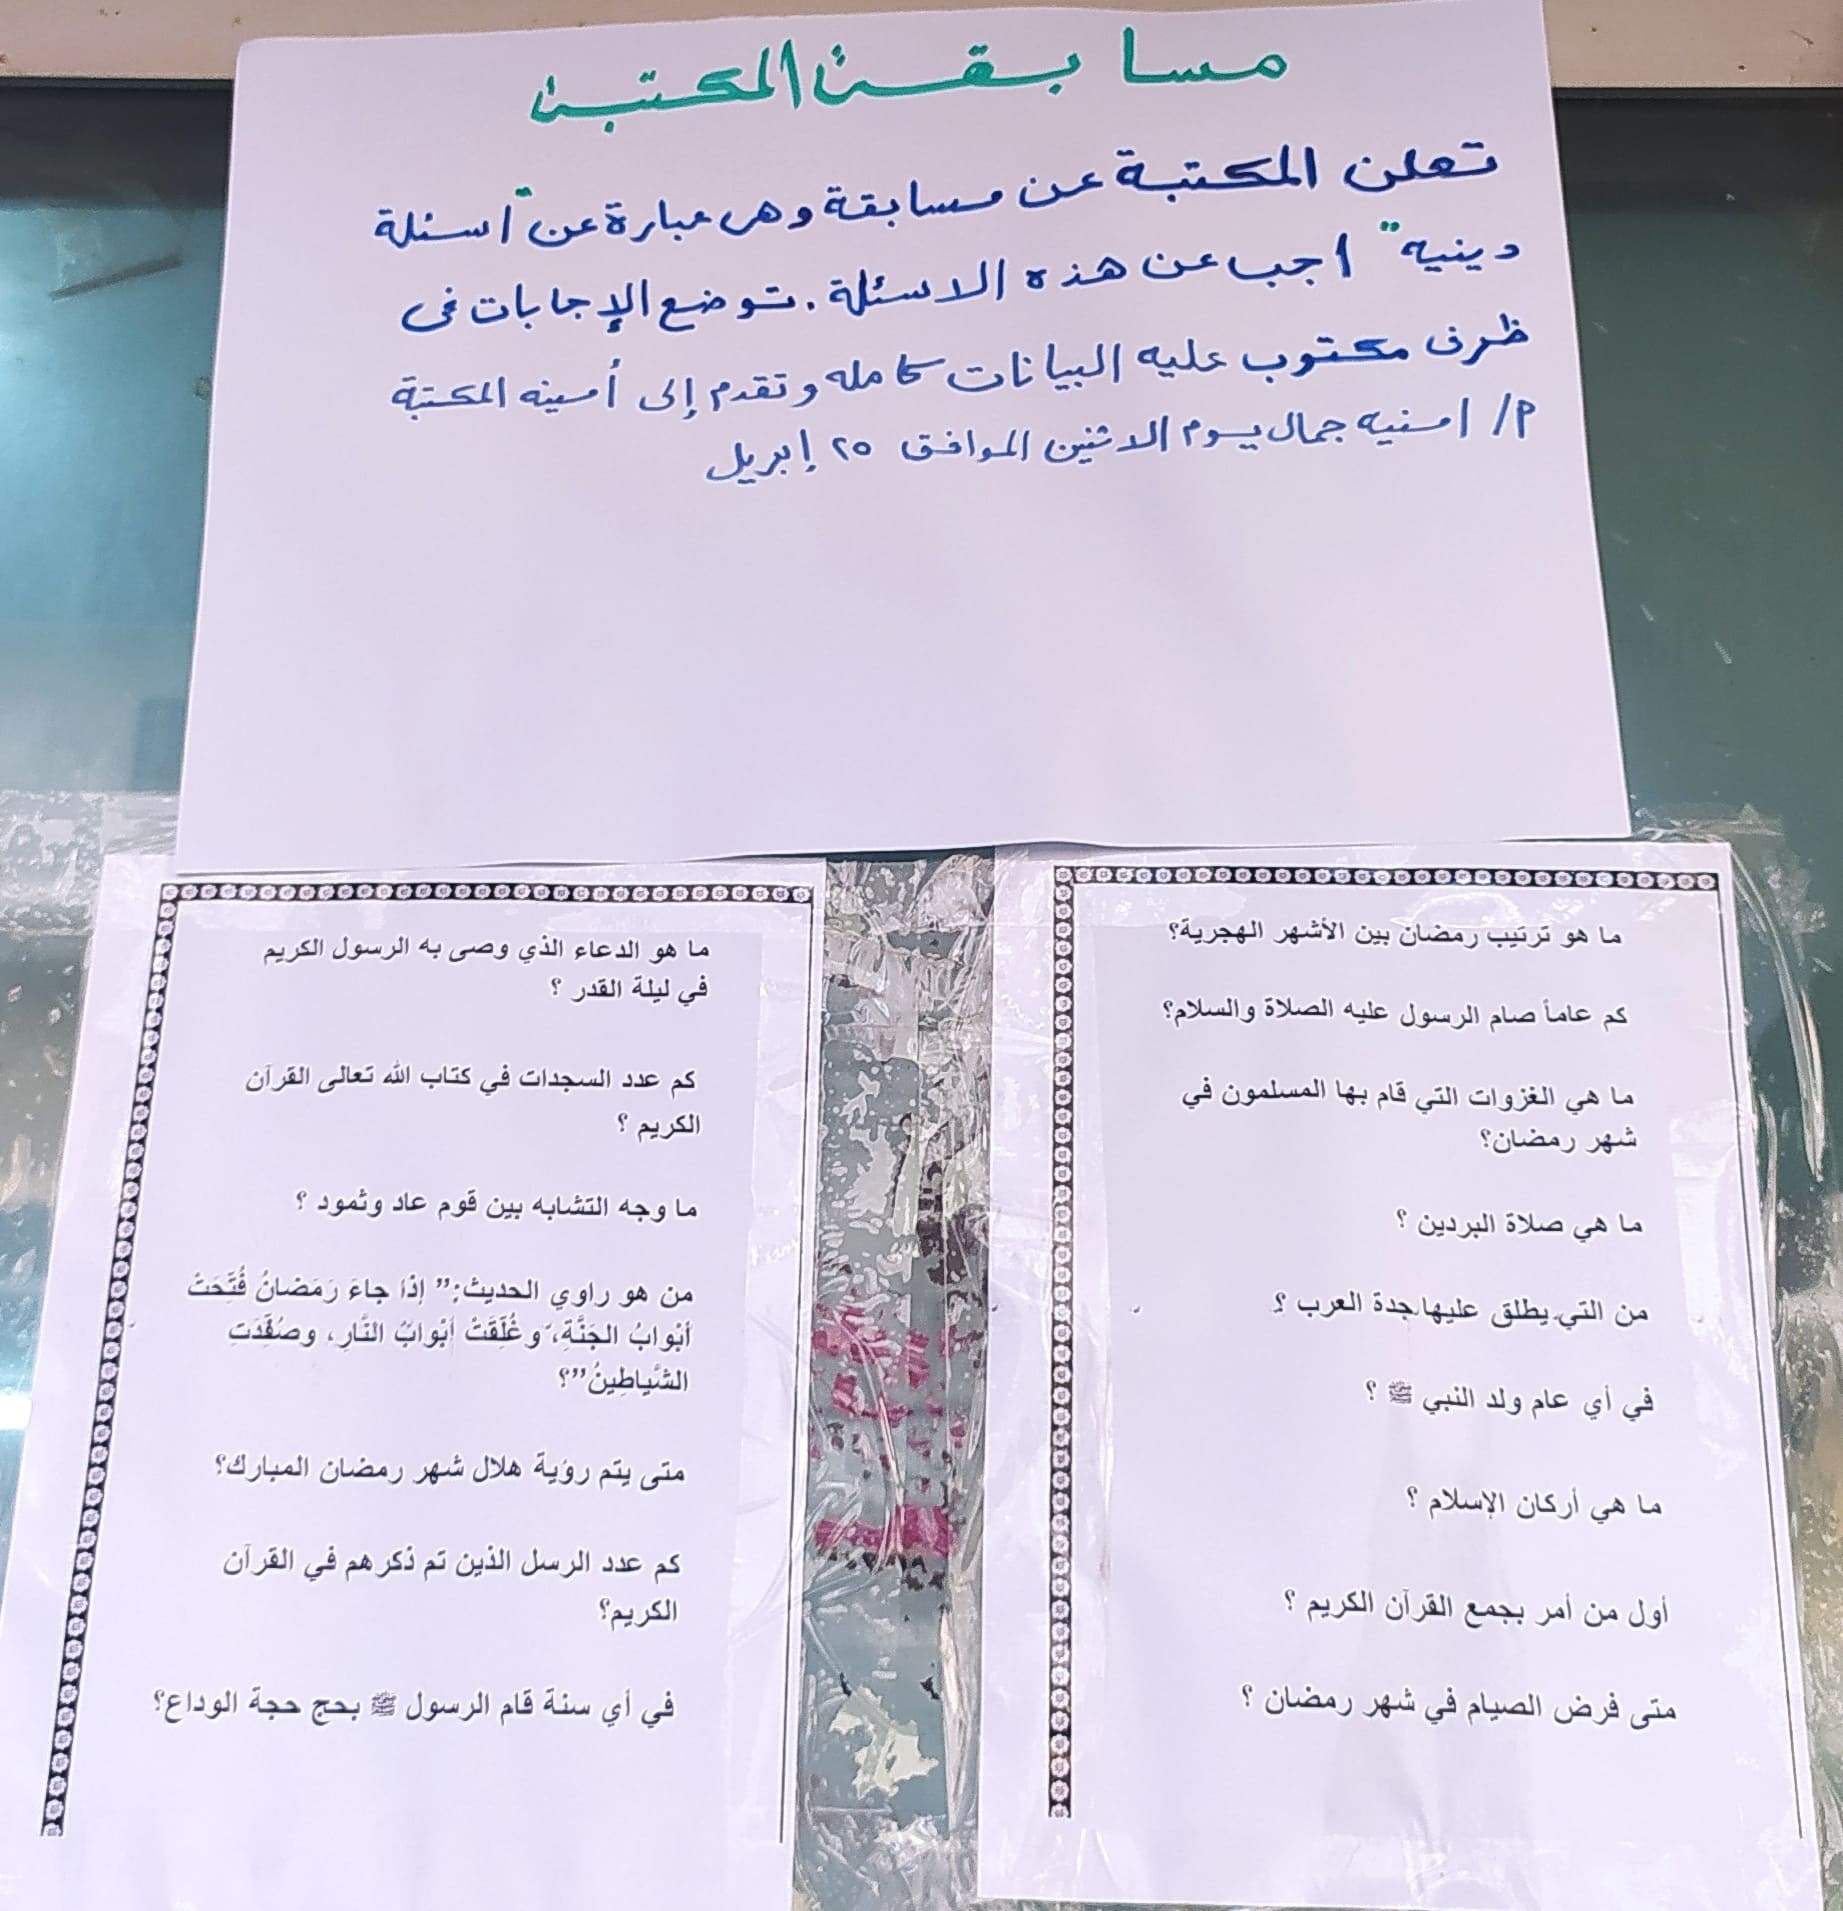 مسابقة المكتبة
تعلن المكتبة عن مسابقة وهى عبارة عن "اسئلة
دينيه" اجب عن هذه الاسئلة. توضع الإجابات فى
ظرف مكتوب عليه البيانات كامله وتقدم إلى أمينه المكتبة
م/ امنيه جمال يوم الاثنين الموافق ٢٥ إبريل
ما هو ترتيب رمضان بين الأشهر الهجرية؟
كم عاماً صام الرسول عليه الصلاة والسلام؟
ما هي الغزوات التي قام بها المسلمون في
شهر رمضان؟
ما هي صلاة البردين ؟
من التي يطلق عليها جدة العرب ؟
في أي عام ولد النبي ﷺ ؟
ما هي أركان الإسلام ؟
أول من أمر بجمع القرآن الكريم ؟
متى فرض الصيام في شهر رمضان ؟
ما هو الدعاء الذي وصى به الرسول الكريم
في ليلة القدر ؟
كم عدد السجدات في كتاب الله تعالى القرآن
الكريم ؟
ما وجه التشابه بين قوم عاد وثمود ؟
من هو راوي الحديث:” إذَا جاءَ رَمَضانُ فُتِّحَتْ
أبْوابُ الجَنَّةِ، وغُلِّقَتْ أبْوابُ النَّارِ، وصُفِّدَتِ
الشَّياطِينُ”؟
متى يتم رؤية هلال شهر رمضان المبارك؟
كم عدد الرسل الذين تم ذكرهم في القرآن
الكريم؟
في أي سنة قام الرسول ﷺ بحج حجة الوداع؟